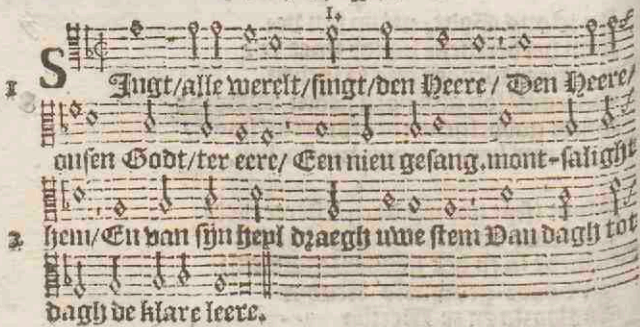 I.
1 SIngt/alle werelt/singt/den Heere/ Den Heere/
onsen Godt/ter eere/ Een nieu gesang. mont-salight
2 hem/En van sijn heyl draegh uwe stem Van dagh tot
dagh de klare leere.